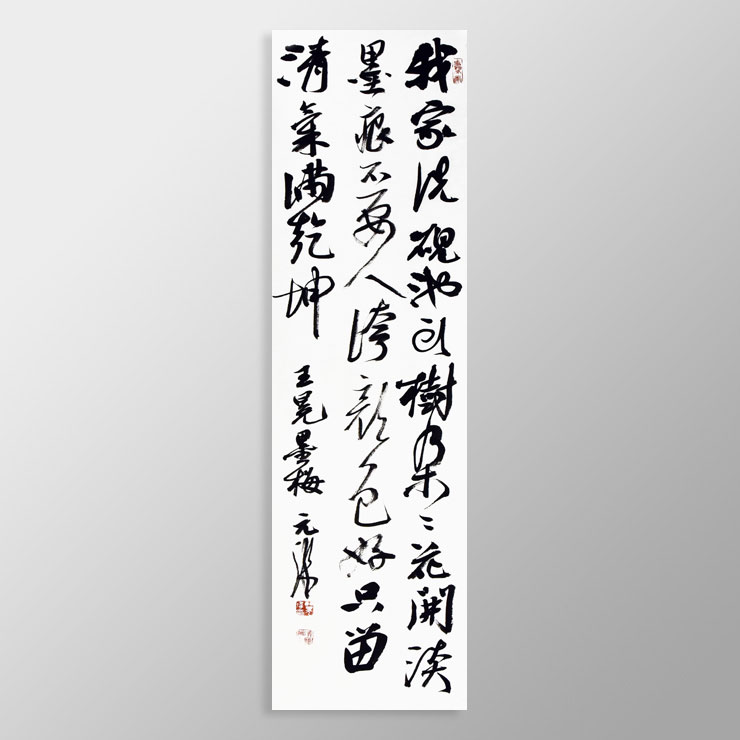 我家洗硯池頭樹朵〻花開淡
墨痕不要人誇顏色好只留
清氣滿乾坤 王冕墨梅 元